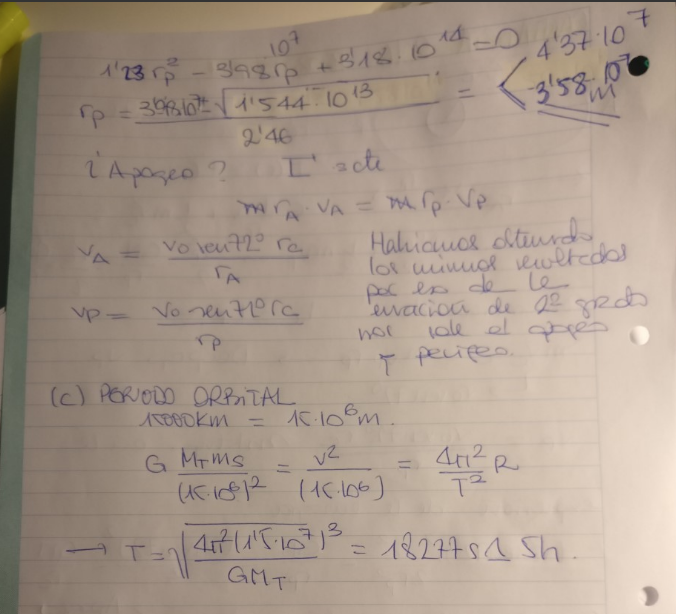 1'23 rp² - 3'98·10⁷ rp + 3'18·10¹⁴ = 0 < 4'37·10⁷
rp = 3'98·10⁷ ± √1'544·10¹³ / 2'46 = 3'58·10⁷ m
¿Apogeo? L = cte
m rA · vA = m rp · vp
vA = vo sen72º rc / rA
vp = vo sen72º rc / rp
Habíamos obtenido
los mismos resultados
por eso de la
ecuación de 2º grado
nos sale el apogeo
y perigeo.
(c) PERIODO ORBITAL
15000KM = 15·10⁶ m.
G MT ms / (15·10⁶)² = v² / (15·10⁶) = 4π² / T² R
→ T = √4π²(1'5·10⁷)³ / GMT = 18277 s ≃ 5h.